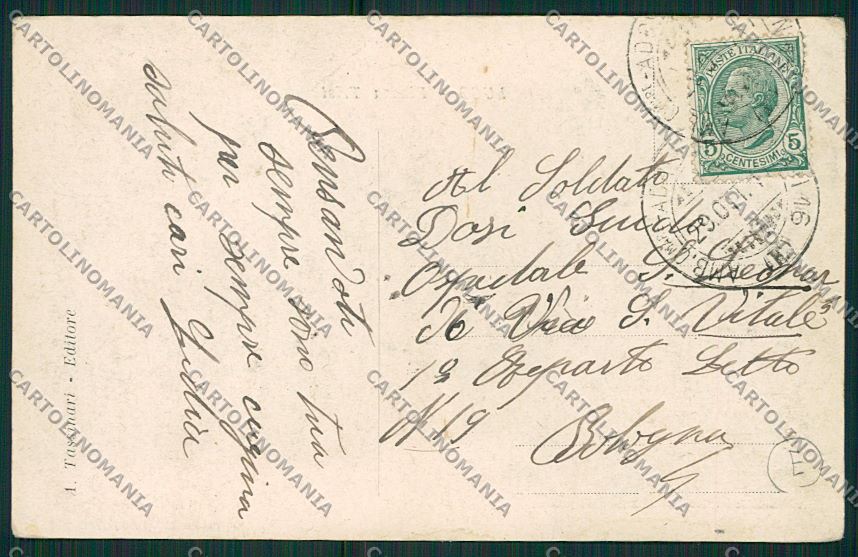 Pensandoti
sempre sono tua
per sempre cugina
saluti cari Lidia
A. Tassinari - Editore
POSTE ITALIANE
5 CENTESIMI 5
Al Soldato
Dosi Guido
Ospedale S. Leonar
do Via S. Vitale
1º Reparto Letto
N 19
Bologna
CARTOLINOMANIA